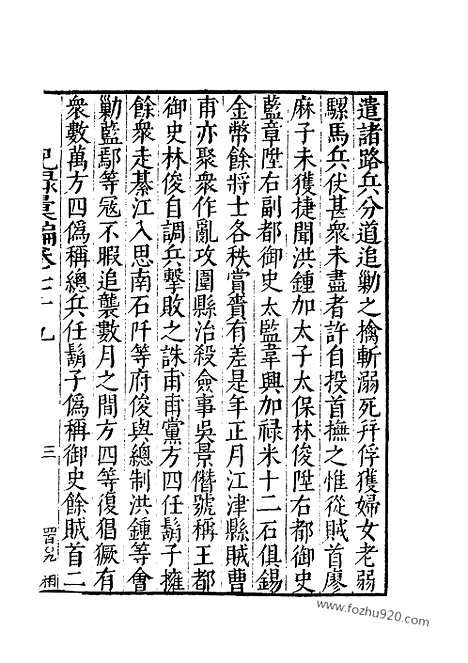 遣諸路兵分道追勦之擒斬溺死幷俘獲婦女老弱
騾馬兵仗甚衆未盡者許自投首撫之惟從賊首廖
麻子未獲捷聞洪鍾加太子太保林俊陞右都御史
藍章陞右副都御史太監韋興加祿米十二石俱錫
金幣餘將士各秩賞賚有差是年正月江津縣賊曹
甫亦聚衆作亂攻圍縣治殺僉事吳景僭號稱王都
御史林俊自調兵擊敗之誅甫甫黨方四任鬍子擁
餘衆走綦江入思南石阡等府俊與總制洪鍾等會
勦藍鄢等寇不暇追襲數月之間方四等復猖獗有
衆數萬方四僞稱總兵任鬍子僞稱御史餘賊首二
紀錄彙編卷之七十九
三
四百〇九
相
www.fozhu920.com